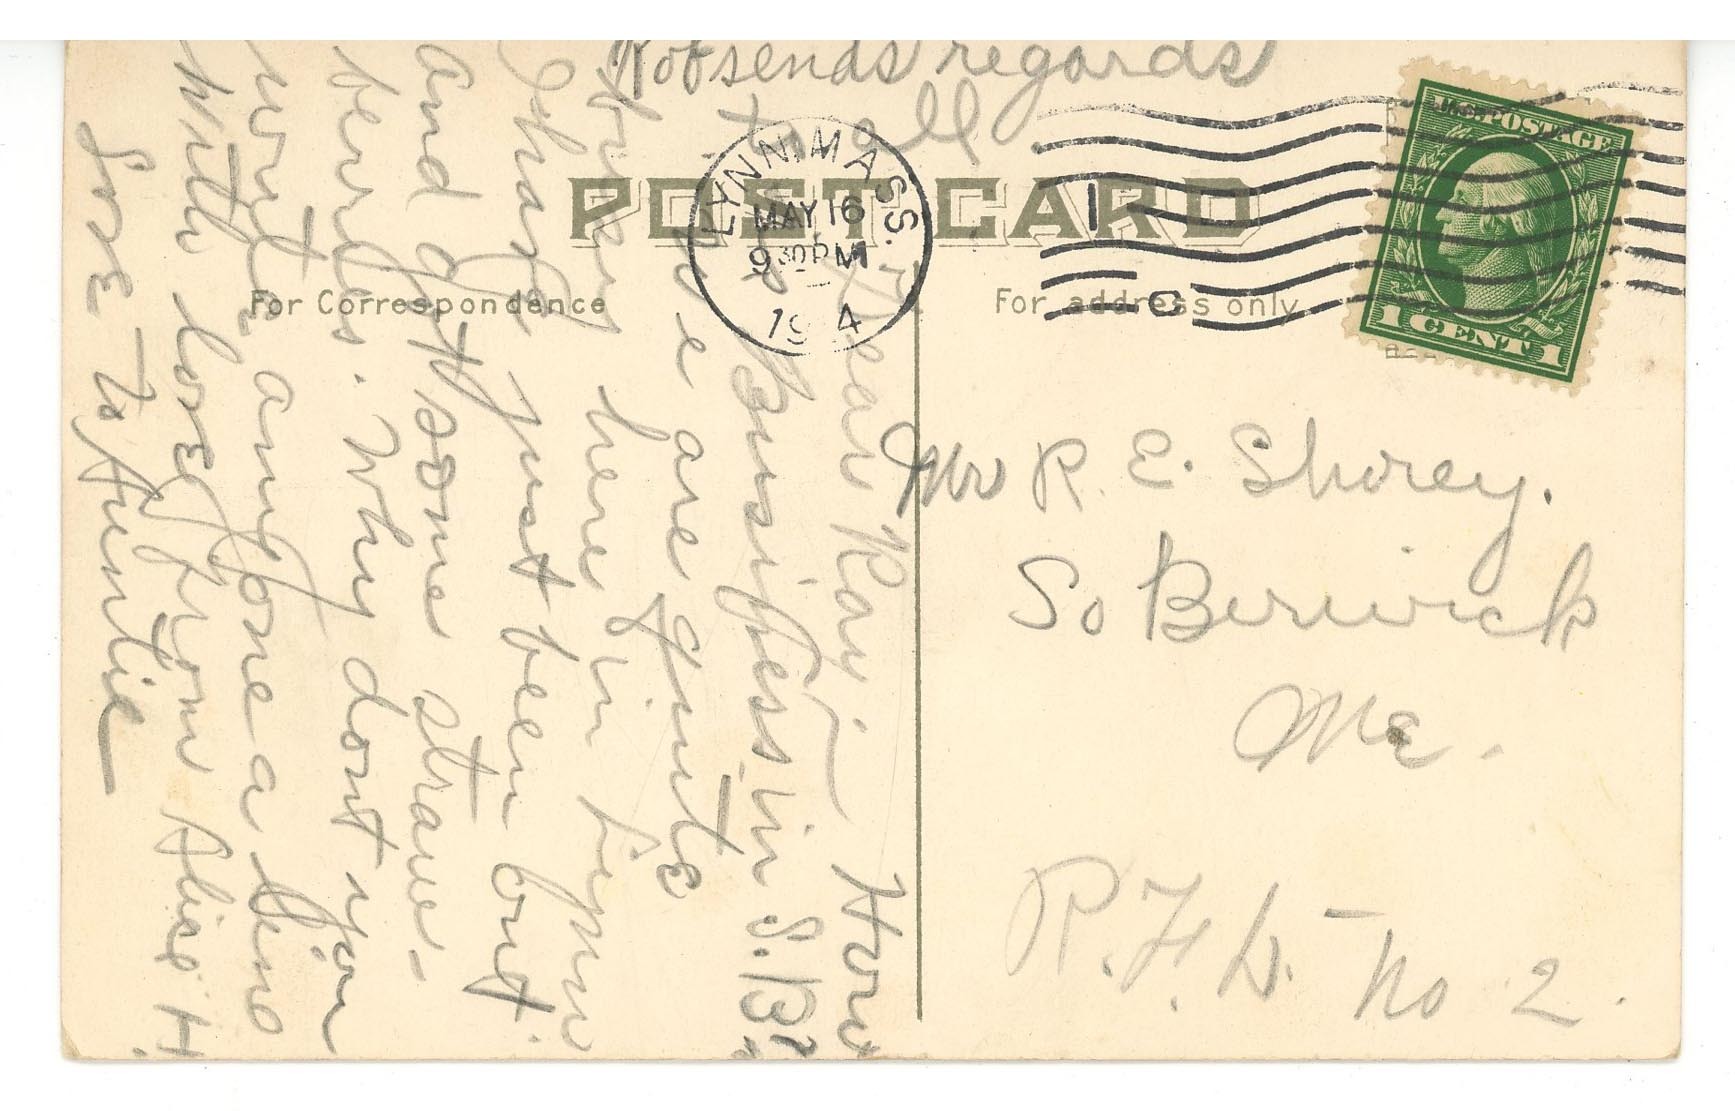 Rob sends regards
to all
POST CARD
LYNN, MASS.
MAY 16
9 30 PM
19 4
U.S. POSTAGE
1 CENT 1
For Correspondence
For address only
Mr R. E. Shorey.
So Berwick
Me.
R.F.D. - No 2.
Dear Ray:- How
is business in S.B?
We are quite
here in
I have just been out
and got some straw-
berries. Why don't you
write anyone a line
With love from Alice H.
Love to Auntie